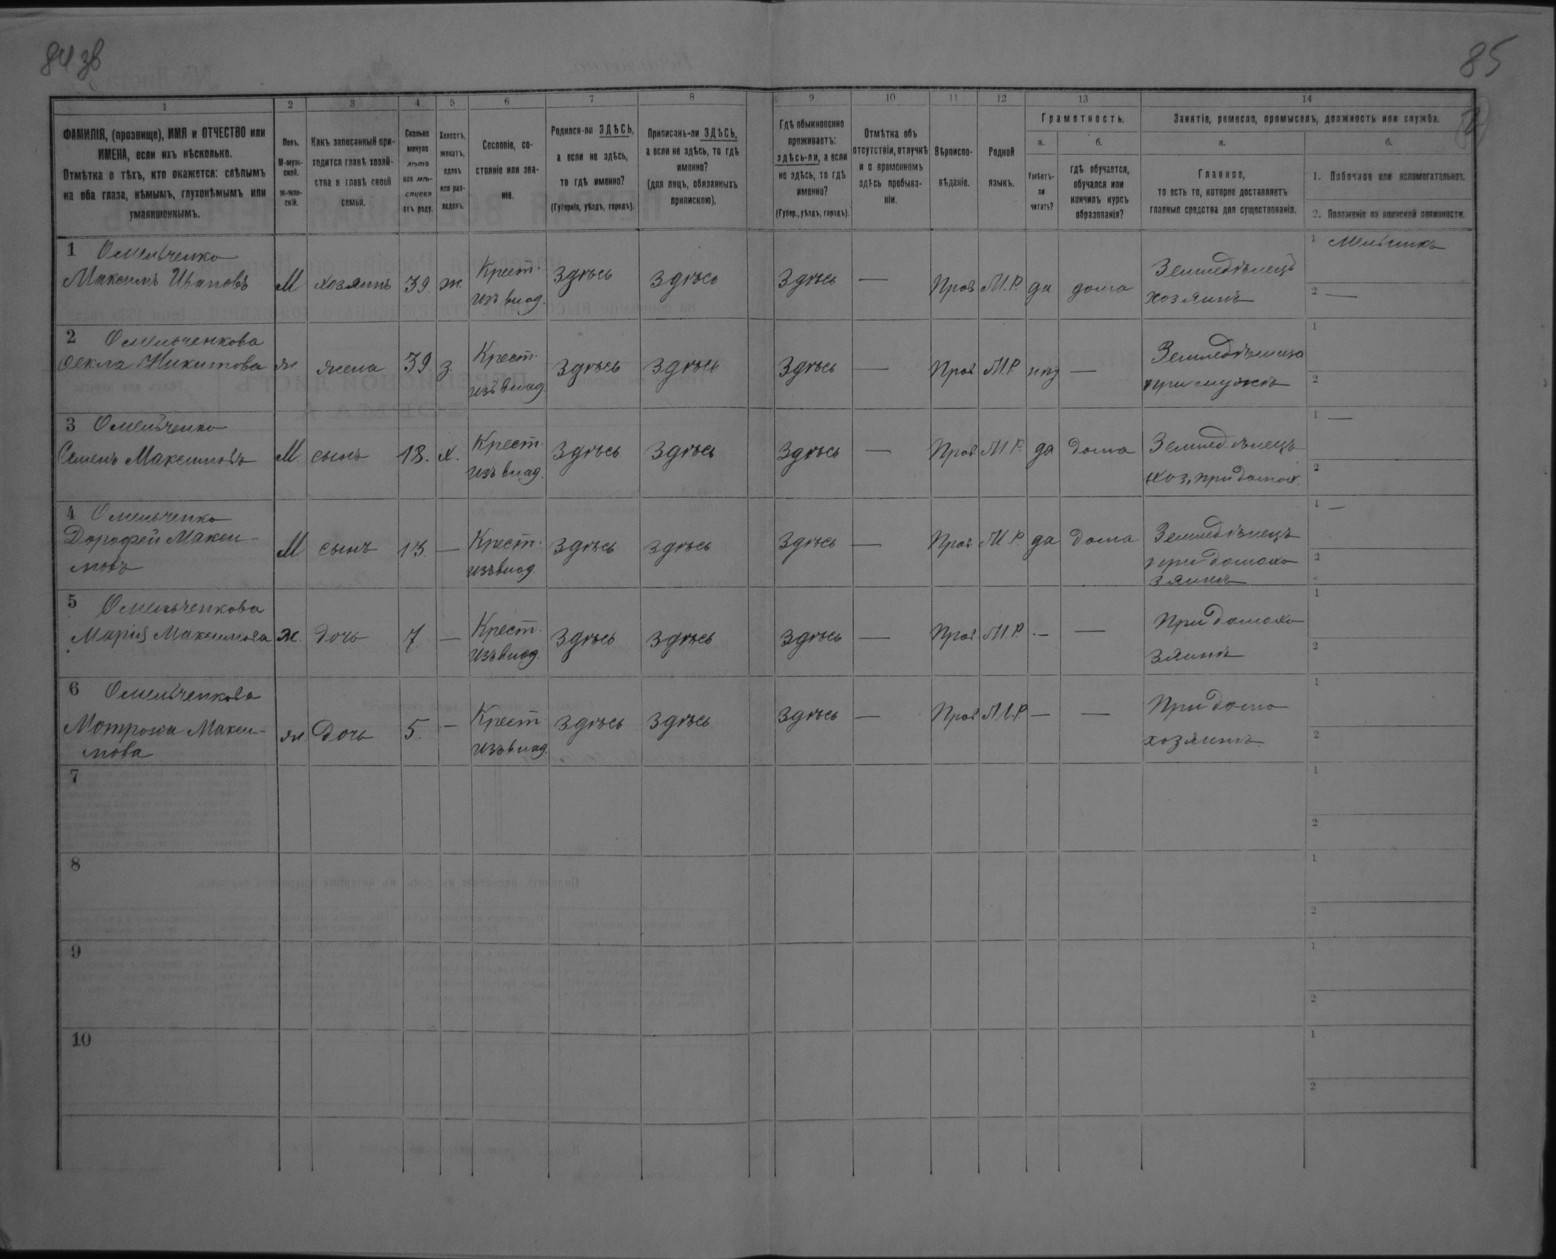 84 зв
85
1
2
3
4
5
6
7
8
9
10
11
12
13
14
ФАМИЛІЯ, (прозвище), ИМЯ и ОТЧЕСТВО или
ИМЕНА, если ихъ нѣсколько.
Отмѣтка о тѣхъ, кто окажется: слѣпымъ
на оба глаза, нѣмымъ, глухонѣмымъ или
умалишеннымъ.
Полъ.
М-муж-
ской.
Ж-жен-
скій.
Какъ записанный при-
ходится главѣ хозяй-
ства и главѣ своей
семьи.
Сколько
минуло
лѣтъ
или мѣ-
сяцевъ
отъ роду.
Холостъ,
женатъ,
вдовъ
или раз-
веденъ.
Сословіе, со-
стояніе или зва-
ніе.
Родился-ли ЗДѢСЬ,
а если не здѣсь,
то гдѣ именно?
(Губернія, уѣздъ, городъ).
Приписанъ-ли ЗДѢСЬ,
а если не здѣсь, то гдѣ
именно?
(для лицъ, обязанныхъ
припискою).
Гдѣ обыкновенно
проживаетъ:
здѣсь-ли, а если
не здѣсь, то гдѣ
именно?
(Губер., уѣздъ, городъ).
Отмѣтка объ
отсутствіи, отлучкѣ
и о временномъ
здѣсь пребыва-
ніи.
Вѣроиспо-
вѣданіе.
Родной
языкъ.
Грамотность.
а.
Умѣетъ-
ли
читать?
б.
гдѣ обучается,
обучался или
кончилъ курсъ
образованія?
Занятіе, ремесло, промыселъ, должность или служба.
а.
Главное,
то есть то, которое доставляетъ
главныя средства для существованія.
б.
1. Побочное или вспомогательное.
2. Положеніе по воинской повинности.
1 Омельченко
Максимъ Ивановъ М хозяинъ 39 ж. Крест. изъ влад. здѣсь здѣсь здѣсь — Прав М.Р. да дома Земледѣлецъ хозяинъ 1 Мельникъ 2 —
2 Омельченкова
Ѳекла Никитова ж жена 39 з. Крест. изъ влад здѣсь здѣсь здѣсь — Прав М.Р. — Земледѣлица при мужѣ 1 2
3 Омельченко
Семенъ Максимовъ М. сынъ 18. х. Крест. изъ влад. здѣсь здѣсь здѣсь — Прав М.Р. да дома Земледѣлецъ 1 — 2
4 Омельченко
Дорофей Макси-
мовъ М сынъ 13. — Крест. изъ влад здѣсь здѣсь здѣсь — Прав М.Р. да дома Земледѣлецъ при домохо зяинѣ 1 — 2
5 Омельченкова
Марія Максимова ж. дочь 7. — Крест. изъ влад. здѣсь здѣсь здѣсь — Прав М.Р. — — При домохо зяинѣ 1 2
6 Омельченкова
Матрона Макси-
мова ж дочь 5. — Крест изъ влад. здѣсь здѣсь здѣсь — Прав М.Р — — При домо хозяинѣ 1 2
7 1 2
8 1 2
9 1 2
10 1 2